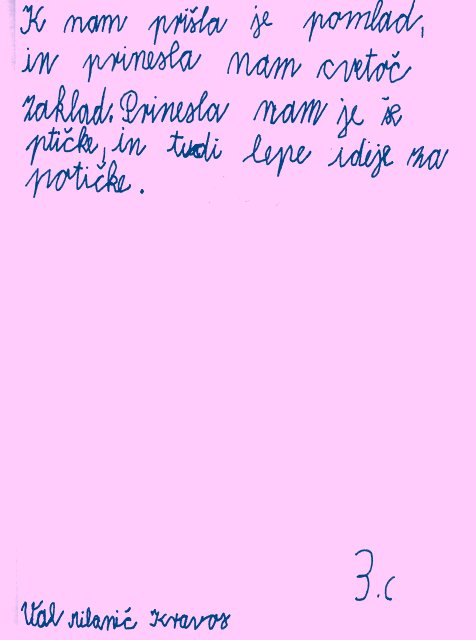 K nam prišla je pomlad,
in prinesla nam cvetoč
zaklad. Prinesla nam je še
ptičke, in tudi lepe ideje za
potičke.
3.c
Val Milanič Kravos